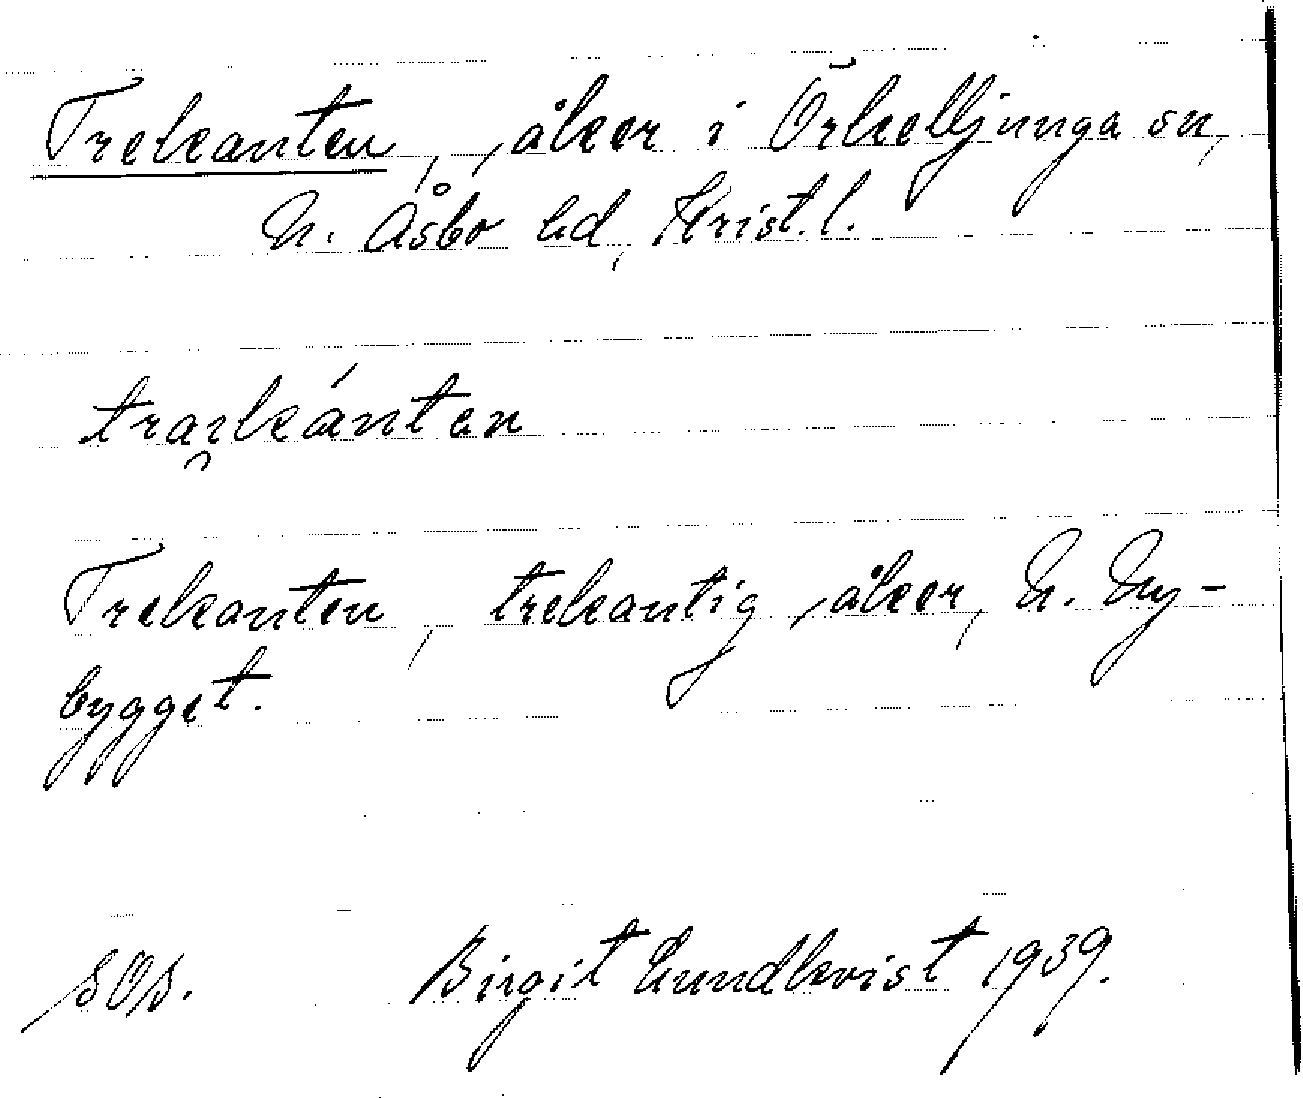 Trekanten, åker i Örkelljunga sn,
N. Åsbo hd, Krist. l.
trai̯kántan
Trekanten, trekantig åker, N. Ny-
bygget.
SOS. Birgit Lundkvist 1939.